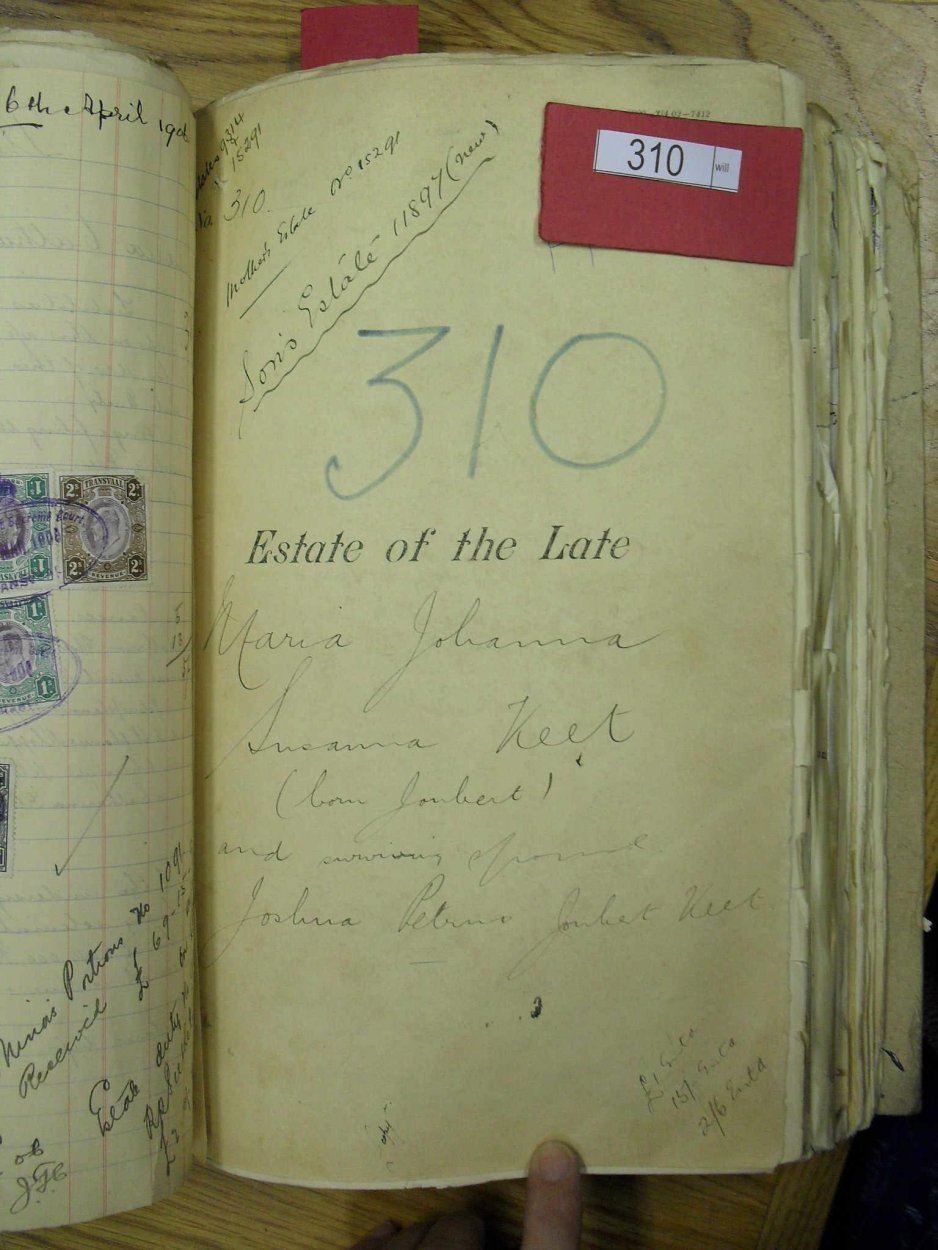 6th April 190
TRANSVAAL
2s 2s
REVENUE
Supreme Court
1s
REVENUE
Minors Portions No 1091
Received £ 69-15-
Estate duty
£2
J.F.C.
9314
15291
No. 310.
Mother's Estate No 15291
Son's Estate 11897 (new)
310 will
310
Estate of the Late
Maria Johanna
Susanna Keet
(born Joubert)
and surviving spouse
Joshua Petrus Joubert Keet
£1
15/-
2/6